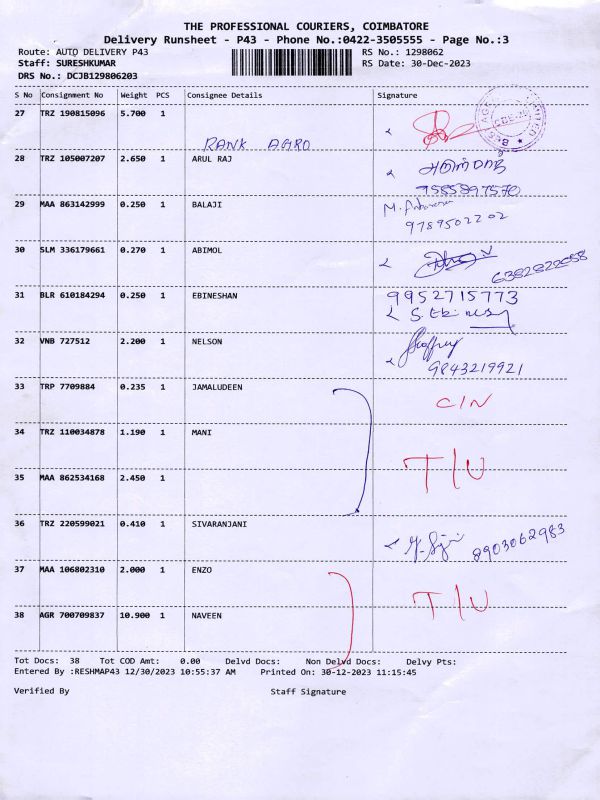 THE PROFESSIONAL COURIERS, COIMBATORE
Delivery Runsheet - P43 - Phone No.:0422-3505555 - Page No.:3
Route: AUTO DELIVERY P43 RS No.: 1298062
Staff: SURESHKUMAR RS Date: 30-Dec-2023
DRS No.: DCJB129806203
S No Consignment No Weight PCS Consignee Details Signature
27 TRZ 190815096 5.700 1
RANK AGRO
28 TRZ 105007207 2.650 1 ARUL RAJ
9585897570
29 MAA 863142999 0.250 1 BALAJI
9789502202
30 SLM 336179661 0.270 1 ABIMOL
6382822058
31 BLR 610184294 0.250 1 EBINESHAN 9952715773
32 VNB 727512 2.200 1 NELSON
9843219921
33 TRP 7709884 0.235 1 JAMALUDEEN C/N
34 TRZ 110034878 1.190 1 MANI
T/U
35 MAA 862534168 2.450 1
36 TRZ 220599021 0.410 1 SIVARANJANI 8903062983
37 MAA 106802310 2.000 1 ENZO
T/U
38 AGR 700709837 10.900 1 NAVEEN
Tot Docs: 38 Tot COD Amt: 0.00 Delvd Docs: Non Delvd Docs: Delvy Pts:
Entered By :RESHMAP43 12/30/2023 10:55:37 AM Printed On: 30-12-2023 11:15:45
Verified By Staff Signature